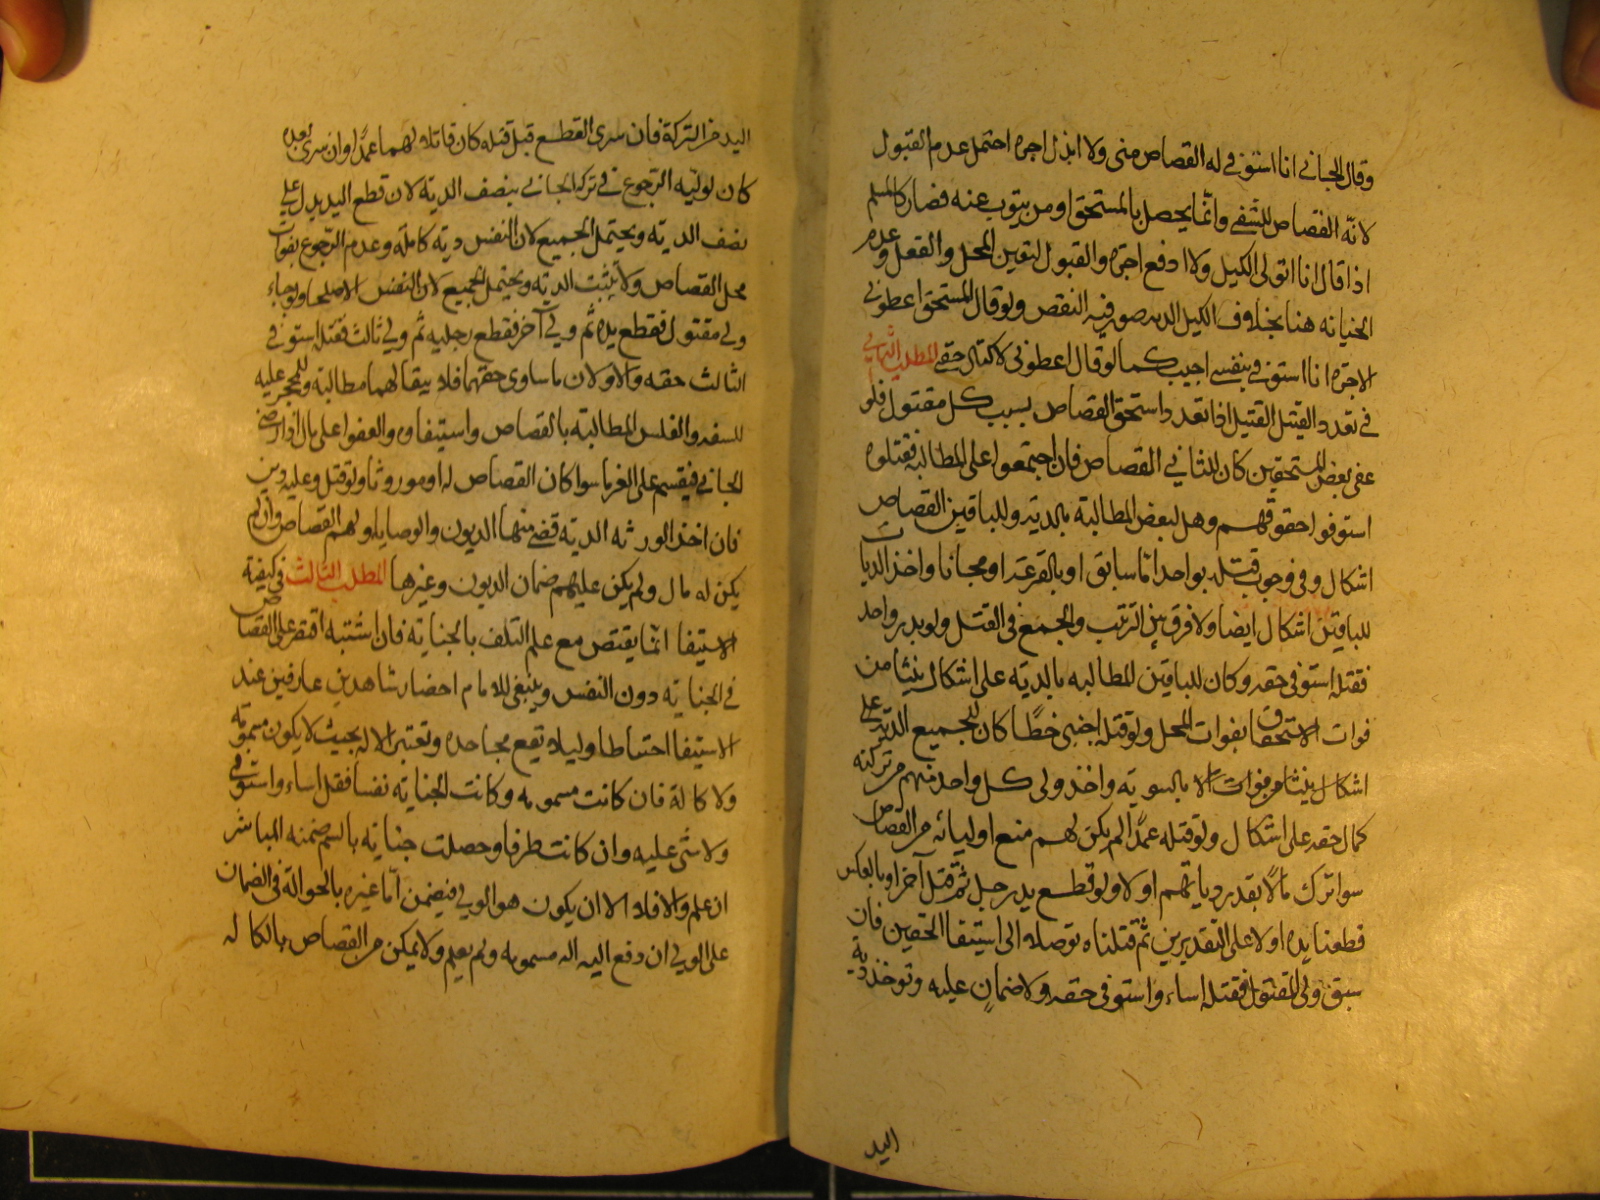 وقال الجاني انا استوفي له القصاص مني ولا ابذل اجرة احتمل عدم القبول
لانه القصاص للتشفي وانما يحصل بالمستحق او من ينوب عنه فصار كالمسلم
اذا قال انا اتولى الكيل ولا ادفع اجرة والقبول لتعين المحل والفعل وعدم
الخيانه هنا بخلاف الكيل الذي صور فيه النقص ولو قال المستحق اعطوني
الاجرة انا استوفي بنفسي اجيب كما لو قال اعطوني لاكتال حقي المطلب الثاني
في تعدد القتيل القتيل اذا تعدد استحق القصاص بسبب كل مقتول فلو
عفى بعض المستحقين كان للثاني القصاص فان اجتمعوا على المطالبة فقتلوه
استوفوا حقوقهم وهل لبعض المطالبة بالدية وللباقين القصاص
اشكال وفي وجوب قتله بواحد اما سابق او بالقرعة او مجانا واخذ الديات
للباقين اشكال ايضا ولا فرق بين الترتب والجمع في القتل ولو بدر واحد
فقتله استوفى حقه وكان للباقين المطالبه بالدية على اشكال ينشا من
فوات الاستحقاق بفوات المحل ولو قتله اجنبي خطأ كان للجميع الدية على
اشكال ينشا بالسوية واخذ ولي كل واحد منهم من تركته
كمال حقه على اشكال ولو قتله عمدا لم يكن لهم منع اوليائه من القصاص
سوا ترك مالا بقدر دياتهم او لا ولو قطع يد رجل ثم قتل آخر او بالعكس
قطعنا يده اولا على التقديرين ثم قتلناه توصلا الى استيفا الحقين فان
سبق ولي المقتول فقتله اساء واستوفى حقه ولا ضمان عليه وتوخذ دية
اليد
اليد من التركة فان سرى القطع قبل قتله كان قاتلا لهما عمدا وان سرى بعده
كان لوليه الرجوع في تركة الجاني بنصف الدية لان قطع اليد بدل على
نصف الدية ويحتمل الجميع لان النفس دية كاملة وعدم الرجوع بفوات
محل القصاص ولا يثبت الدية ويحتمل الجميع لان النفس الا صلحا ولو جاء
ولي مقتول فقطع يده ثم ولي آخر فقطع رجليه ثم ولي ثالث فقتله استوفى
الثالث حقه والاولان ما ساوى حقهما فلا يبقا لهما مطالبة وللمحجر عليه
للسفه والفلس المطالبة بالقصاص واستيفاوه والعفو على مال اذا رضي
الجاني فيقسم على الغرما سوا كان القصاص له او موروثا ولو قتل وعليه دين
فان اخذ الورثه الدية قضي منها الديون والوصايا ولهم القصاص وان لم
يكن له مال ولم يكن عليهم ضمان الديون وغيرها المطلب الثالث في كيفية
الاستيفا انما يقتص مع علم التلف بالجناية فان اشتبه اقتصر على القصاص
في الجناية دون النفس وينبغي للامام احضار شاهدين عارفين عند
الاستيفا احتياطا وليلا تقع مجاحدة وتعتبر الاله بحيث لا يكون مسمومة
ولا كالة فان كانت مسمومه وكانت الجناية نفسا فقد اساء واستوفى
ولا شي عليه وان كانت طرفا وحصلت جناية بالسم ضمنه المباشر
ان علم والا فلا الا ان يكون هو الولي فيضمن اما غيره بالحوالة في الضمان
على الولي ان دفع اليه اله مسمومه ولم يعلم ولا يمكن من القصاص بالكالة